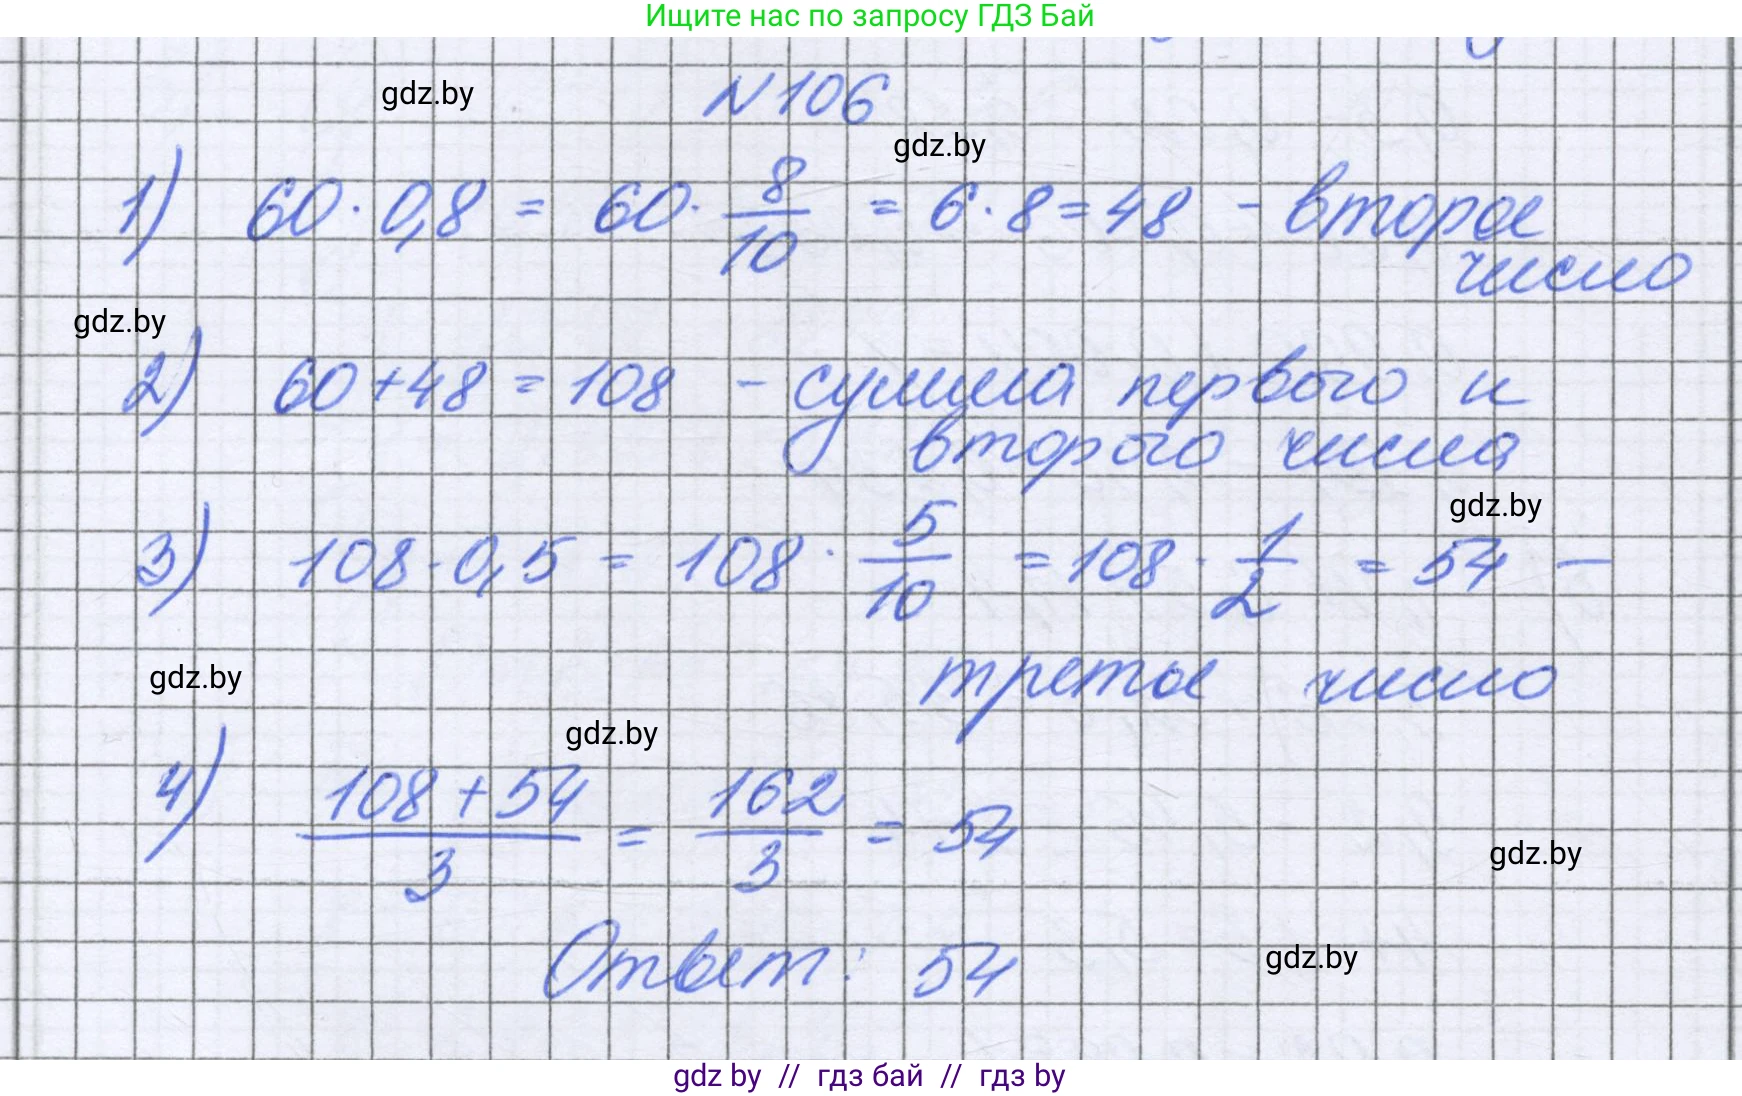 Ищите нас по запросу ГДЗ Бай
gdz.by
N106
gdz.by
1) 60 · 0,8 = 60 · 8/10 = 6 · 8 = 48 - второе
число
gdz.by
2) 60 + 48 = 108 - сумма первого и
второго числа
gdz.by
3) 108 · 0,5 = 108 · 5/10 = 108 · 1/2 = 54 —
третье число
gdz.by
gdz.by
4) (108 + 54)/3 = 162/3 = 54
gdz.by
Ответ: 54
gdz.by
gdz by // гдз бай // гдз by